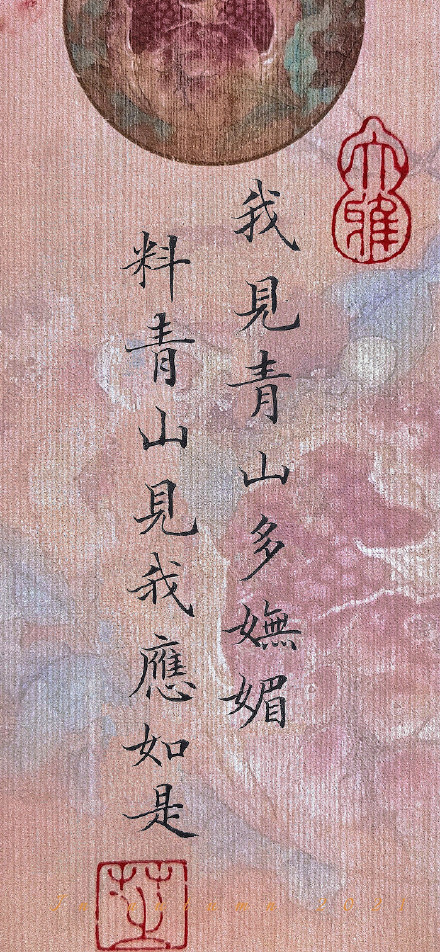 大雅
我見青山多嫵媚
料青山見我應如是